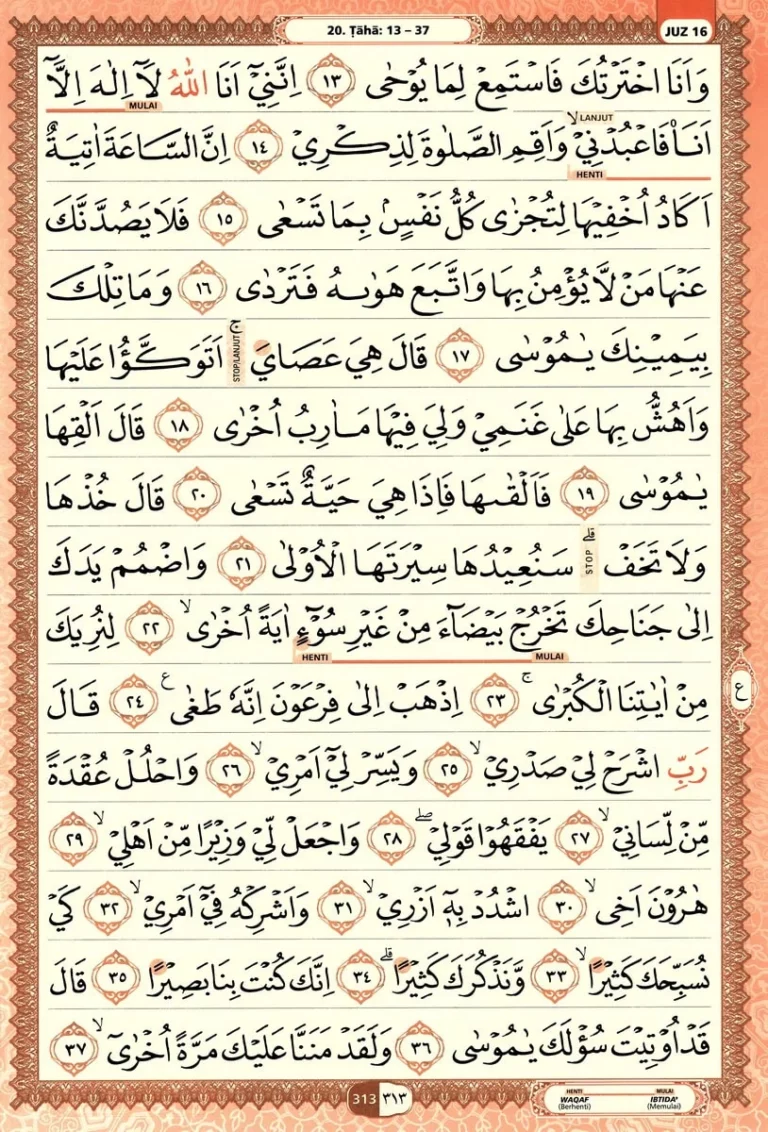 20. Ṭāhā: 13 – 37
JUZ 16
وَاَنَا اخْتَرْتُكَ فَاسْتَمِعْ لِمَا يُوْحٰى ١٣ اِنَّنِيْٓ اَنَا اللّٰهُ لَآ اِلٰهَ اِلَّآ
MULAI
اَنَا۠ فَاعْبُدْنِيْۙ وَاَقِمِ الصَّلٰوةَ لِذِكْرِيْ ١٤ اِنَّ السَّاعَةَ اٰتِيَةٌ
LANJUT
HENTI
اَكَادُ اُخْفِيْهَا لِتُجْزٰى كُلُّ نَفْسٍۢ بِمَا تَسْعٰى ١٥ فَلَا يَصُدَّنَّكَ
عَنْهَا مَنْ لَّا يُؤْمِنُ بِهَا وَاتَّبَعَ هَوٰىهُ فَتَرْدٰى ١٦ وَمَا تِلْكَ
بِيَمِيْنِكَ يٰمُوْسٰى ١٧ قَالَ هِيَ عَصَايَۚ اَتَوَكَّؤُا عَلَيْهَا
STOP/LANJUT
وَاَهُشُّ بِهَا عَلٰى غَنَمِيْ وَلِيَ فِيْهَا مَاٰرِبُ اُخْرٰى ١٨ قَالَ اَلْقِهَا
يٰمُوْسٰى ١٩ فَاَلْقٰىهَا فَاِذَا هِيَ حَيَّةٌ تَسْعٰى ٢٠ قَالَ خُذْهَا
وَلَا تَخَفْۗ سَنُعِيْدُهَا سِيْرَتَهَا الْاُوْلٰى ٢١ وَاضْمُمْ يَدَكَ
STOP
اِلٰى جَنَاحِكَ تَخْرُجْ بَيْضَاۤءَ مِنْ غَيْرِ سُوْۤءٍ اٰيَةً اُخْرٰىۙ ٢٢ لِنُرِيَكَ
MULAI
HENTI
مِنْ اٰيٰتِنَا الْكُبْرٰىۚ ٢٣ اِذْهَبْ اِلٰى فِرْعَوْنَ اِنَّهٗ طَغٰى ع ٢٤ قَالَ
ع
رَبِّ اشْرَحْ لِيْ صَدْرِيْۙ ٢٥ وَيَسِّرْ لِيْٓ اَمْرِيْۙ ٢٦ وَاحْلُلْ عُقْدَةً
مِّنْ لِّسَانِيْۙ ٢٧ يَفْقَهُوْا قَوْلِيْۖ ٢٨ وَاجْعَلْ لِّيْ وَزِيْرًا مِّنْ اَهْلِيْۙ ٢٩
هٰرُوْنَ اَخِىۙ ٣٠ اشْدُدْ بِهٖٓ اَزْرِيْۙ ٣١ وَاَشْرِكْهُ فِيْٓ اَمْرِيْۙ ٣٢ كَيْ
نُسَبِّحَكَ كَثِيْرًاۙ ٣٣ وَّنَذْكُرَكَ كَثِيْرًاۗ ٣٤ اِنَّكَ كُنْتَ بِنَا بَصِيْرًا ٣٥ قَالَ
قَدْ اُوْتِيْتَ سُؤْلَكَ يٰمُوْسٰى ٣٦ وَلَقَدْ مَنَنَّا عَلَيْكَ مَرَّةً اُخْرٰىٓۙ ٣٧
313 ٣١٣
HENTI MULAI
WAQAF IBTIDA'
(Berhenti) (Memulai)